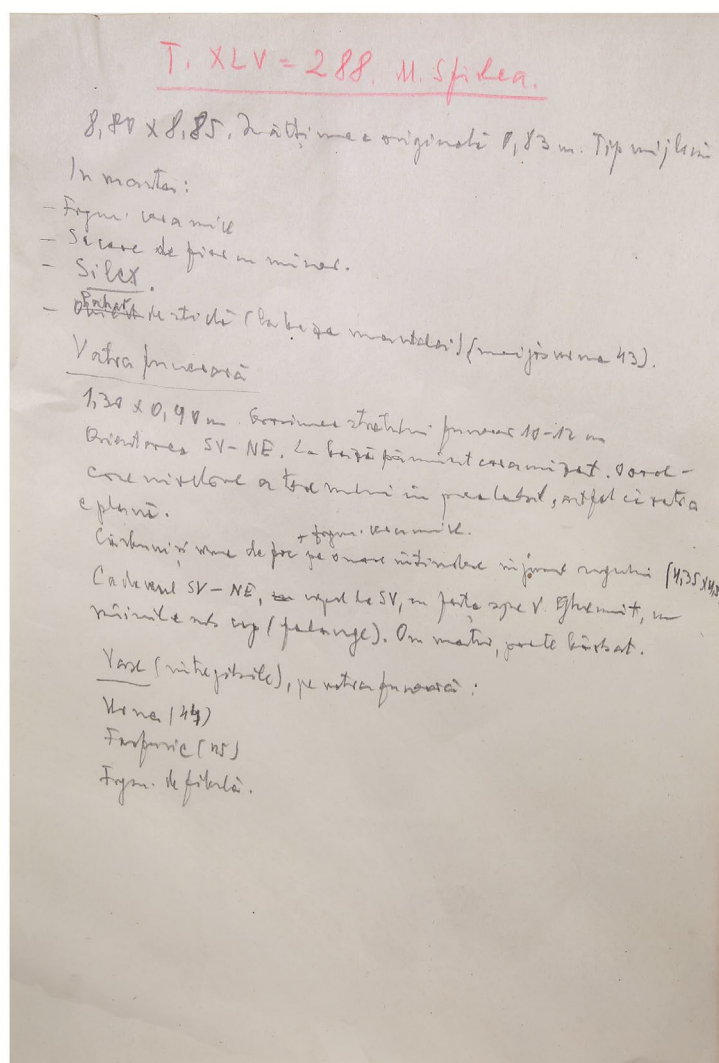 T. XLV = 288. M. Sfidea.
8,80 x 8,85. Înălțimea originală 0,83 m. Tip mijlociu
In manta:
- Fragm. ceramice
- Secare de fier cu miner.
- Silex.
- Pahar de sticlă (la baza mantalei) (mai jos urna 43).
Vatra funerară
1,30 x 0,90 m. Grosimea stratului funerar 10-12 cm
Orientarea SV-NE. La bază pământ ceramizat.
nivelare a terenului în prealabil, astfel că vatra
e plană.
+ fragm. ceramice.
Cărbuni și urme de foc pe o mare întindere în jurul rugului (4,35 x
Cadavrul SV-NE, capul la SV, cu fața spre V. Ghemuit, cu
mâinile sub cap (falange). Om matur, poate bărbat.
Vase (întregibile), pe vatra funerară:
Urna (44)
Farfurie (45)
Fragm. de fibulă.